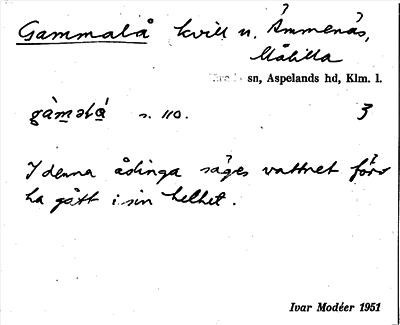 Gammalå kvill u. Ämmenäs,
Målilla
sn, Aspelands hd, Klm. l.
gàmalá s. 110. 3
I denna ådinga säges vattnet förr
ha gått i sin helhet.
Ivar Modéer 1951